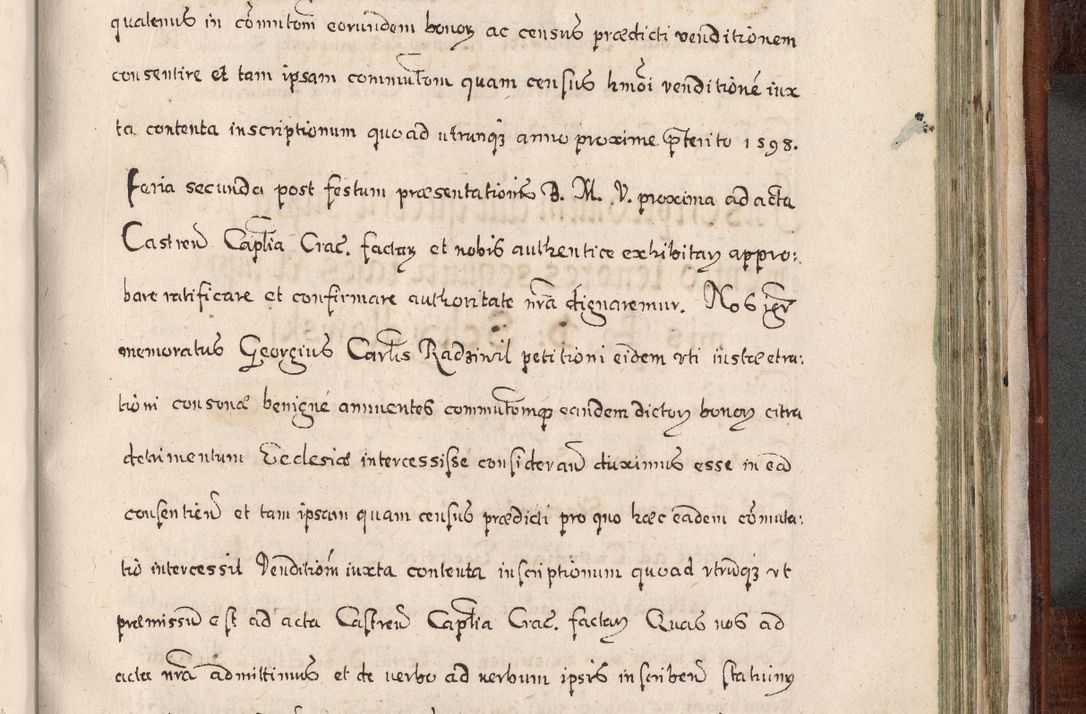 quatenus in cõmutom̃ eorundem bonoꝝ ac census prædicti venditionem
consentire et tam ipsam commut̃om quam census hmõi venditioné iux
ta contenta inscriptionum quoad utrunq; anno proxime p̃terito 1598.
Feria secunda post festum præsentationis B. M. V. proxima ad acta
Castreñ Capt̃lia Crac. factaꝝ et nobis authentice exhibitaꝝ appro:
bare ratificare et confirmare authoritate nr̃a dignaremur. Nos igr̃
memoratus Georgius Carl̃is Radziwil petitioni eidem uti iustæ et ra:
tioni consonæ benigné annuentes commut̃omq; eandem dictoꝝ bonoꝝ citra
detrimentum Ecclesiæ intercessisse consideran̄ duximus esse in eã
consentien̄ et tam ipsam quam census prædicti pro quo hæc eadem cõmuta:
tio intercessit Venditiom̃ iuxta contenta inscriptionum quoad utrũq; ut
præmissũ est ad acta Castreñ Capt̃lia Crac. factaꝝ Quas nos ad
acta nr̃a admittimus et de verbo ad verbum ipsis inscriben̄ statuimꝰ